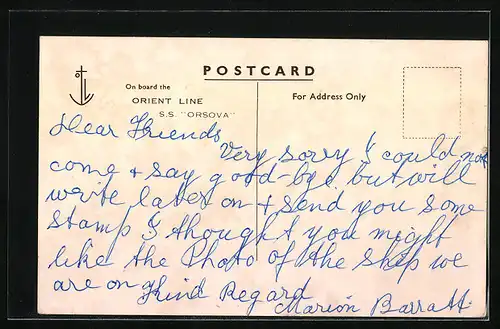 POSTCARD
On board the
ORIENT LINE
S.S. "ORSOVA"
For Address Only
Dear Friends
Very sorry I could not
come + say good-bye but will
write later on + send you some
stamp I thought you might
like the Photo of the ship we
are on
Kind Regard
Marion Barratt.